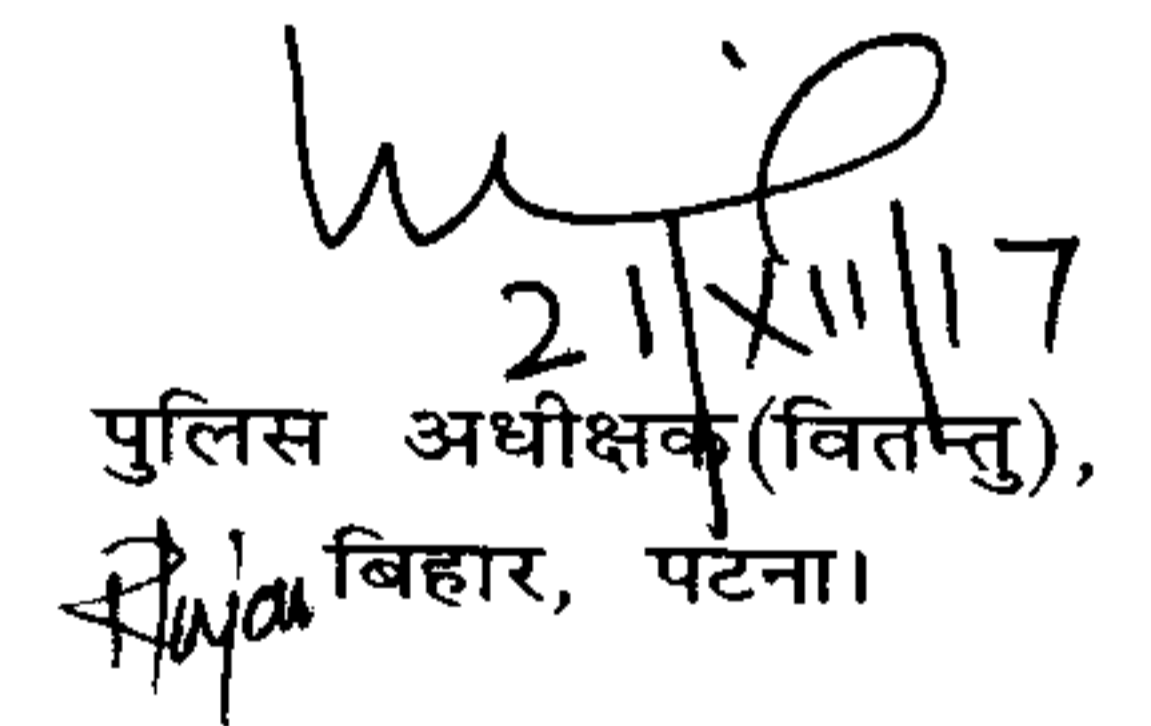 21/XII/17
पुलिस अधीक्षक(वितन्तु),
बिहार, पटना।